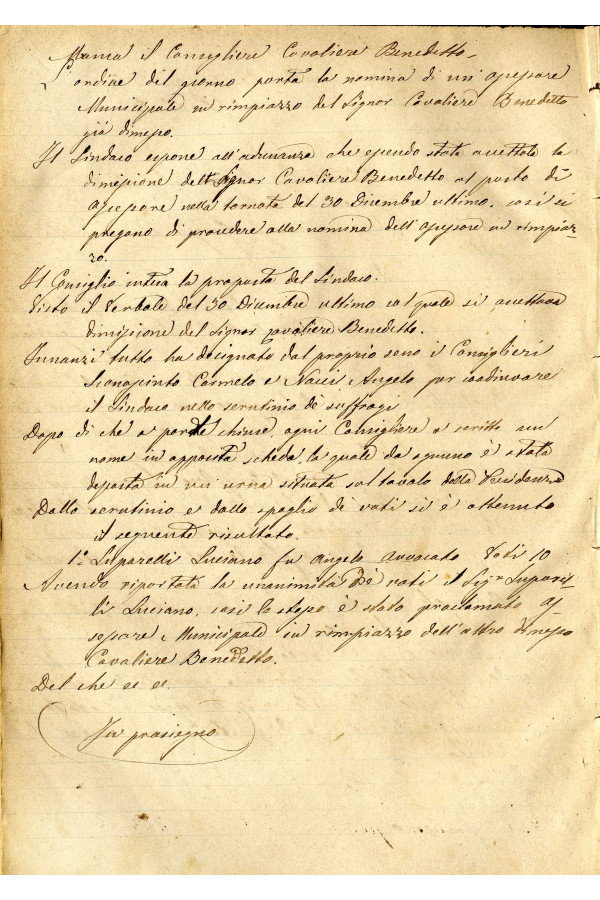 Manca il Consigliere Cavaliere Benedetto.
L'ordine del giorno porta la nomina di un'assessore
Municipale in rimpiazzo del Signor Cavaliere Benedetto
già dimesso.
Il Sindaco espone all'adunanza che essendo stata accettata la
dimissione dell Signor Cavaliere Benedetto al posto di
assessore nella tornata del 30 Dicembre ultimo, così si
pregano di provedere alla nomina dell'assessore in rimpiaz=
zo.
Il Consiglio intesa la proposta del Sindaco.
Visto il Verbale del 30 Dicembre ultimo col quale si accettava
dimissione del Signor Cavaliere Benedetto.
Innanzi tutto ha designato dal proprio seno i Consiglieri
Carmelo e Angelo per coadiuvare
il Sindaco nello scrutinio dè suffragi
Dopo di che a porte chiuse, ogni Consigliere a scritto un
nome in apposita scheda, la quale da ognuno è stata
deposta in un urna situata sul tavolo della Presidenza
Dallo scrutinio e dallo spoglio di voti si è ottenuto
il seguente risultato.
1° Luparelli Luciano fu Angelo avvocato Voti 10
Avendo riportata la unanimità dè voti il Sigr Luparel=
li Luciano, così lo stesso è stato proclamato as
sessore Municipale in rimpiazzo dell'altro dimesso
Cavaliere Benedetto.
Del che ec ec.